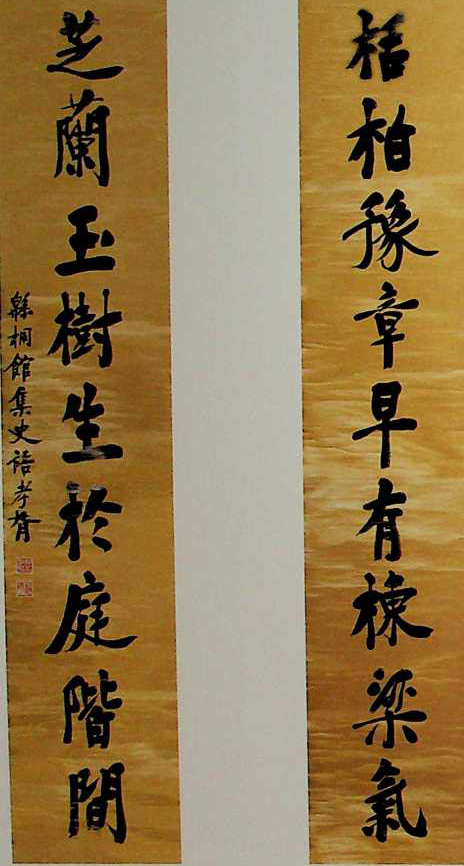 栝柏豫章早有棟梁氣
芝蘭玉樹生於庭階間
緜桐館集史語孝胥